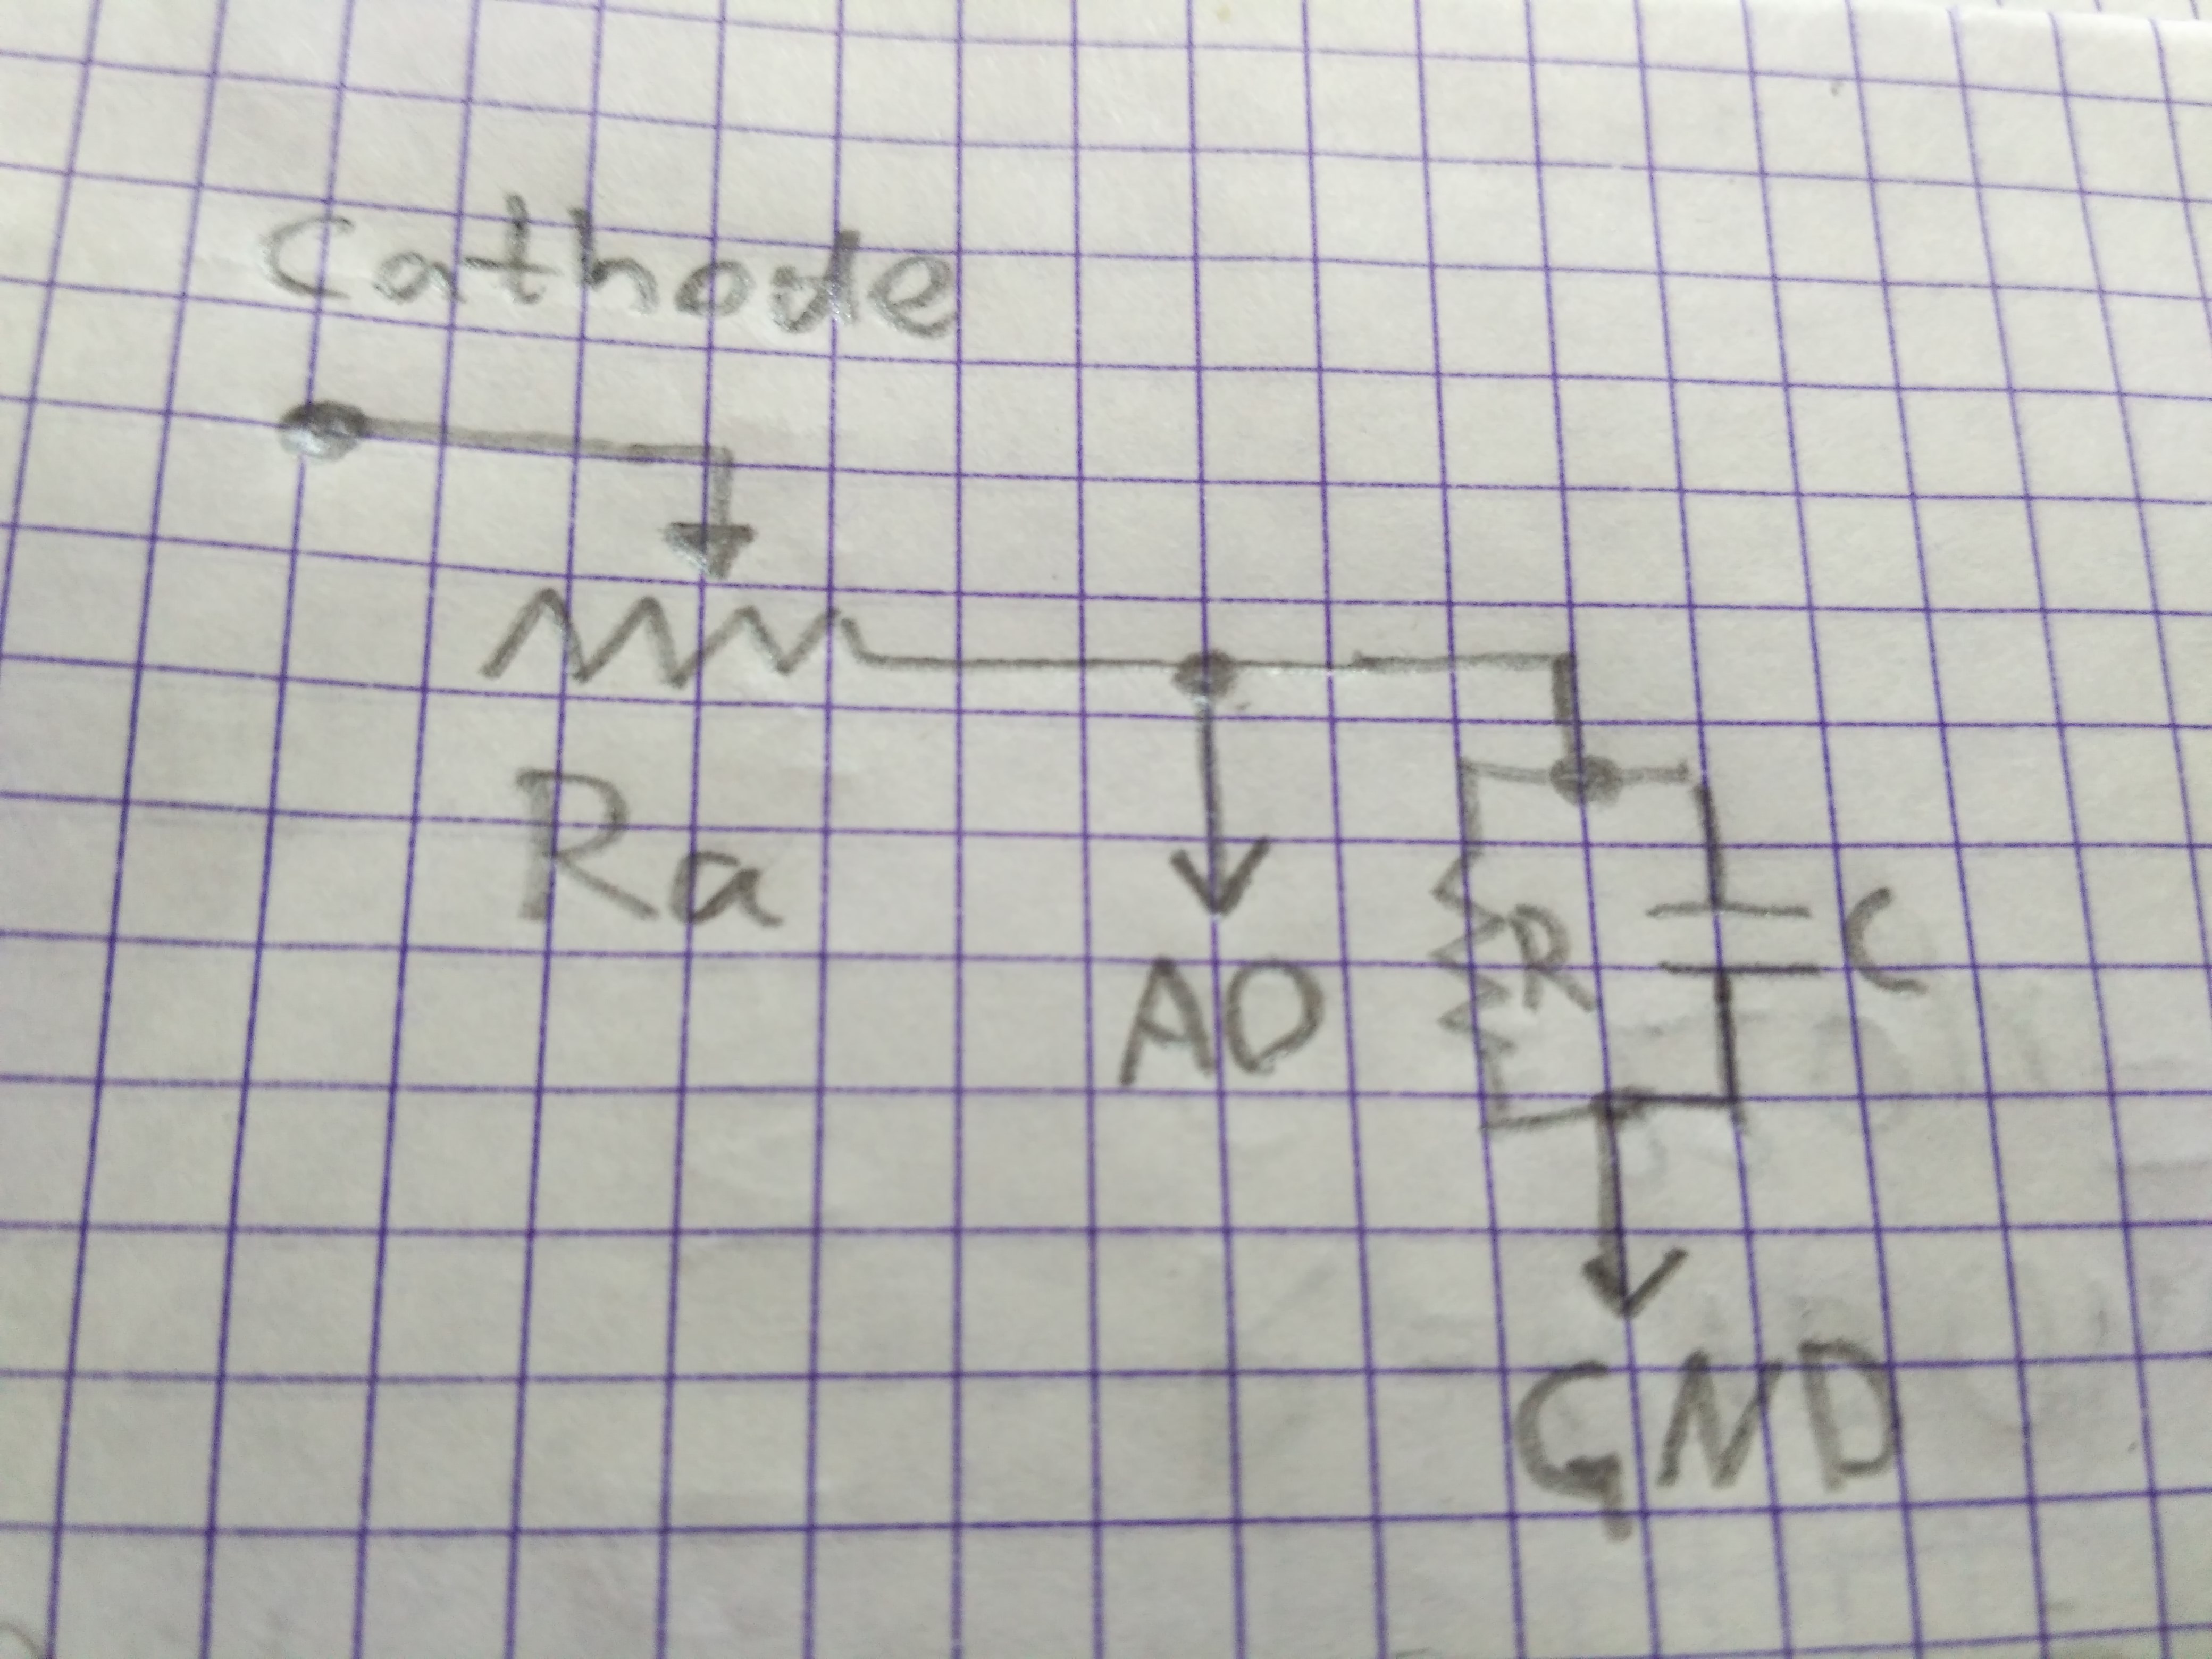 Cathode
Ra
AO
R
C
GND